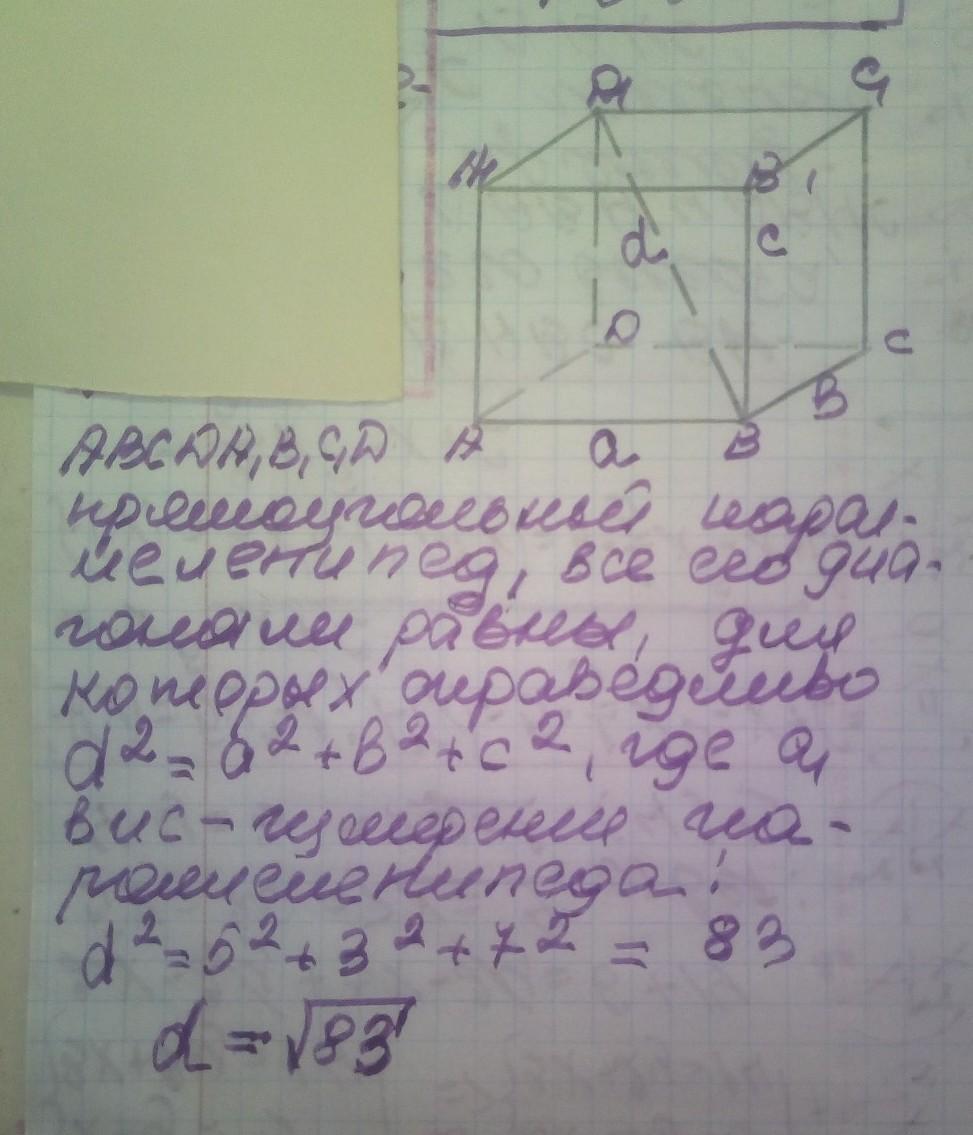 D₁ C₁
A₁ B₁
d c
D C
B
A a B
ABCDA₁B₁C₁D
прямоугольный парал-
лелепипед, все его диа-
гонали равны, для
которых справедливо
d² = a² + b² + c², где a,
в и с - измерения па-
раллелепипеда:
d² = 5² + 3² + 7² = 83
d = √83